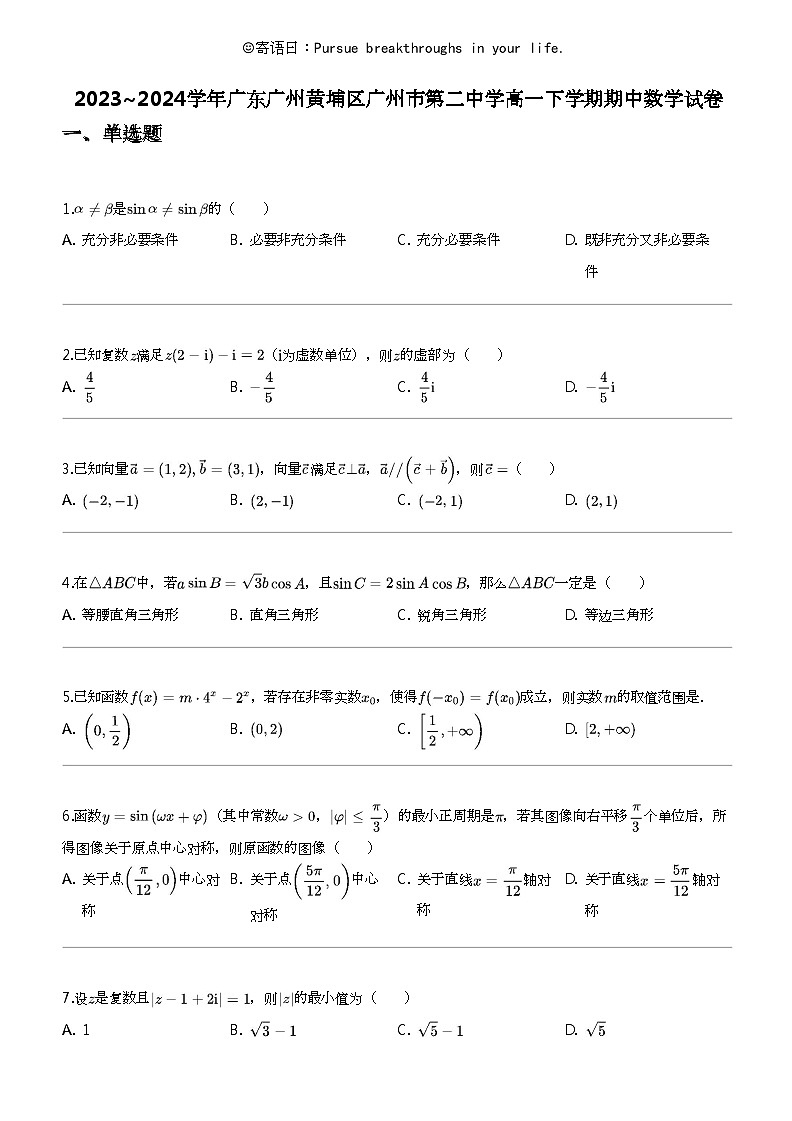 ☺寄语日：Pursue breakthroughs in your life.
2023~2024学年广东广州黄埔区广州市第二中学高一下学期期中数学试卷
一、单选题
1.α ≠ β是sin α ≠ sin β的（　　）
A. 充分非必要条件 B. 必要非充分条件 C. 充分必要条件 D. 既非充分又非必要条
件
2.已知复数z满足z(2 − i) − i = 2（i为虚数单位），则z的虚部为（　　）
A. 4/5 B. −4/5 C. 4/5 i D. −4/5 i
3.已知向量a⃗ = (1, 2), b⃗ = (3, 1)，向量c⃗满足c⃗⊥a⃗，a⃗//(c⃗ + b⃗)，则c⃗ =（　　）
A. (−2, −1) B. (2, −1) C. (−2, 1) D. (2, 1)
4.在△ABC中，若a sin B = √3b cos A，且sin C = 2 sin A cos B，那么△ABC一定是（　　）
A. 等腰直角三角形 B. 直角三角形 C. 锐角三角形 D. 等边三角形
5.已知函数f(x) = m · 4ˣ − 2ˣ，若存在非零实数x₀，使得f(−x₀) = f(x₀)成立，则实数m的取值范围是.
A. (0, 1/2) B. (0, 2) C. [1/2, +∞) D. [2, +∞)
6.函数y = sin (ωx + φ)（其中常数ω > 0，|φ| ≤ π/3）的最小正周期是π，若其图像向右平移π/3个单位后，所
得图像关于原点中心对称，则原函数的图像（　　）
A. 关于点(π/12, 0)中心对 B. 关于点(5π/12, 0)中心 C. 关于直线x = π/12轴对 D. 关于直线x = 5π/12轴对
称 对称 称 称
7.设z是复数且|z − 1 + 2i| = 1，则|z|的最小值为（　　）
A. 1 B. √3 − 1 C. √5 − 1 D. √5